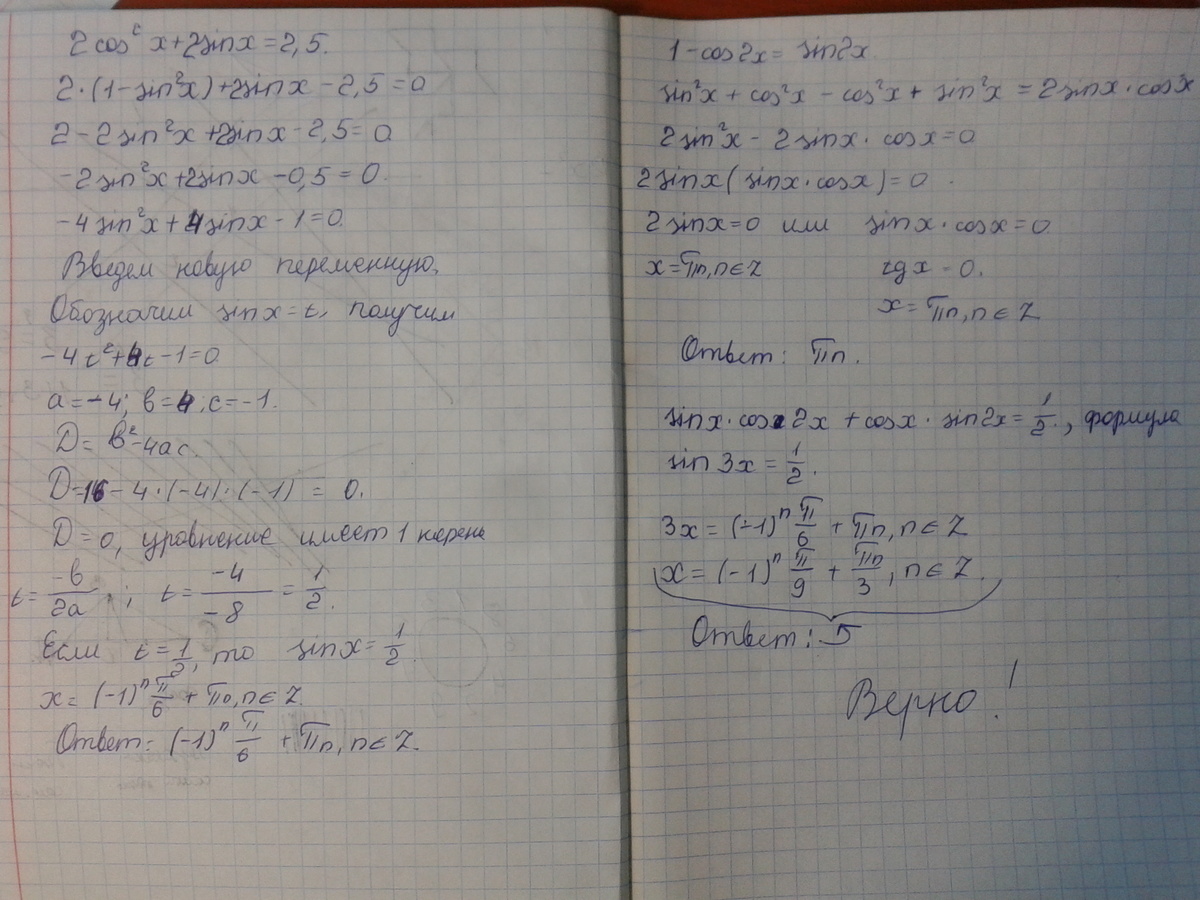 2cos²x+2sinx=2,5.
2·(1-sin²x)+2sinx-2,5=0
2-2sin²x+2sinx-2,5=0
-2sin²x+2sinx-0,5=0.
-4sin²x+4sinx-1=0.
Введем новую переменную.
Обозначим sinx=t, получим
-4t²+4t-1=0
a=-4; b=4; c=-1.
D=b²-4ac.
D=16-4·(-4)·(-1)=0.
D=0, уравнение имеет 1 корень
t=-b/2a; t=-4/-8=1/2.
Если t=1/2, то sinx=1/2.
x=(-1)ⁿ π/6+πn, n∈Z.
Ответ: (-1)ⁿ π/6+πn, n∈Z.
1-cos2x=sin2x.
sin²x+cos²x-cos²x+sin²x=2sinx·cosx
2sin²x-2sinx·cosx=0
2sinx(sinx·cosx)=0.
2sinx=0 или sinx·cosx=0
x=πn, n∈Z tgx=0.
x=πn, n∈Z
Ответ: πn.
sinx·cos2x+cosx·sin2x=1/2., формула
sin3x=1/2.
3x=(-1)ⁿ π/6+πn, n∈Z
x=(-1)ⁿ π/9+πn/3, n∈Z.
Ответ: 5
Верно!